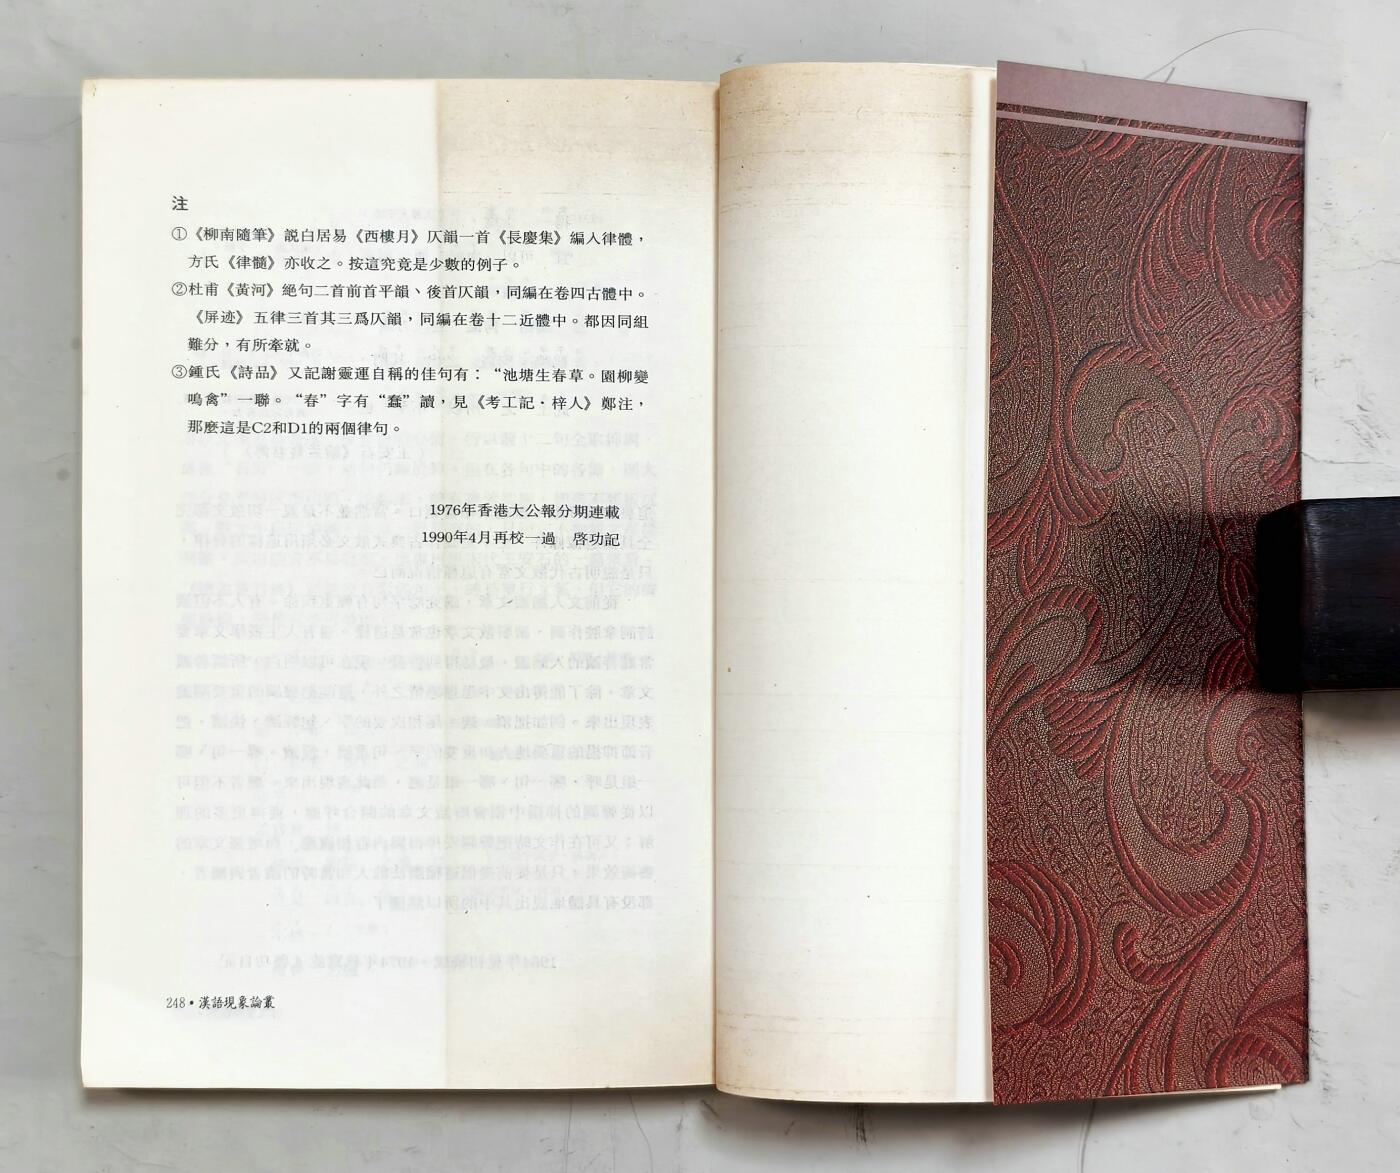 注
①《柳南隨筆》説白居易《西樓月》仄韻一首《長慶集》編入律體，
方氏《律髓》亦收之。按這究竟是少數的例子。
②杜甫《黃河》絕句二首前首平韻、後首仄韻，同編在卷四古體中。
《屏迹》五律三首其三爲仄韻，同編在卷十二近體中。都因同組
難分，有所牽就。
③鍾氏《詩品》又記謝靈運自稱的佳句有：“池塘生春草。園柳變
鳴禽”一聯。“春”字有“蠢”讀，見《考工記·梓人》鄭注，
那麽這是C2和D1的兩個律句。
1976年香港大公報分期連載
1990年4月再校一過　啓功記
248·漢語現象論叢